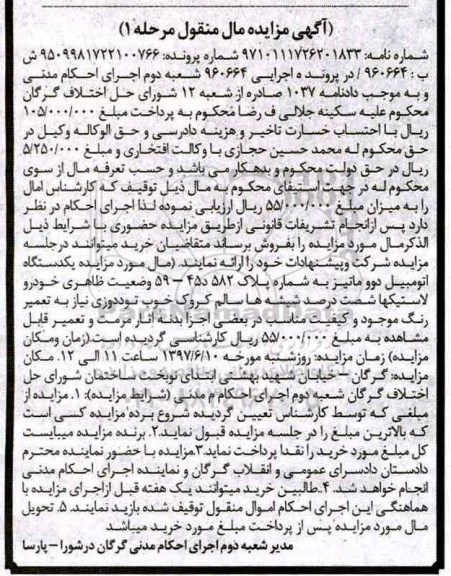 (آگهی مزایده مال منقول مرحله ۱)
شماره نامه: ۹۷۱۰۱۱۱۷۲۶۲۰۱۸۳۳ شماره پرونده: ۹۵۰۹۹۸۱۷۲۲۱۰۰۷۶۶ ش
ب : ۹۶۰۶۶۴ / در پرونده اجرایی ۹۶۰۶۶۴ شعبه دوم اجرای احکام مدنی
و به موجب دادنامه ۱۰۳۷ صادره از شعبه ۱۲ شورای حل اختلاف گرگان
محکوم علیه سکینه جلالی ف رضا محکوم به پرداخت مبلغ ۱۰۵/۰۰۰/۰۰۰
ریال با احتساب خسارت تاخیر و هزینه دادرسی و حق الوکاله وکیل در
حق محکوم له محمد حسین حجازی با وکالت افتخاری و مبلغ ۵/۲۵۰/۰۰۰
ریال در حق دولت محکوم و بدهکار می باشد و حسب تعرفه مال از سوی
محکوم له در جهت استیفای محکوم به مال ذیل توقیف که کارشناس اموال
را به میزان مبلغ ۵۵/۰۰۰/۰۰۰ ریال ارزیابی نموده لذا اجرای احکام در نظر
دارد پس ازانجام تشریفات قانونی ازطریق مزایده حضوری با شرایط ذیل
الذکرمال مورد مزایده را بفروش برساند متقاضیان خرید میتوانند درجلسه
مزایده شرکت وپیشنهادات خود را ارائه نمایند. (مال مورد مزایده یکدستگاه
اتومبیل دوو ماتیز به شماره پلاک ۵۸۲ د۴۵ – ۵۹ وضعیت ظاهری خودرو
لاستیکها شصت درصد شیشه ها سالم کروک خوب تودوزی نیاز به تعمیر
رنگ موجود و کیفیت مناسب در بعضی اجزا بدنه آثار مرمت و تعمیر قابل
مشاهده به مبلغ ۵۵/۰۰۰/۰۰۰ ریال کارشناسی گردیده است.(زمان ومکان
مزایده) زمان مزایده: روزشنبه مورخه ۱۳۹۷/۶/۱۰ ساعت ۱۱ الی ۱۲. مکان
مزایده: گرگان – خیابان شهید بهشتی ابتدای نوبخت ساختمان شورای حل
اختلاف گرگان شعبه دوم اجرای احکام م مدنی (شرایط مزایده): ۱. مزایده از
مبلغی که توسط کارشناس تعیین گردیده شروع برده مزایده کسی است
که بالاترین مبلغ را در جلسه مزایده قبول نماید.۲. برنده مزایده میبایست
کل مبلغ مورد خرید را نقدا پرداخت نماید.۳.مزایده با حضور نماینده محترم
دادستان دادسرای عمومی و انقلاب گرگان و نماینده اجرای احکام مدنی
انجام خواهد شد. ۴..طالبین خرید میتوانند یک هفته قبل ازاجرای مزایده با
هماهنگی این اجرای احکام اموال منقول توقیف شده بازید نمایند. ۵. تحویل
مال مورد مزایده پس از پرداخت مبلغ مورد خرید میباشد
مدیر شعبه دوم اجرای احکام مدنی گرگان درشورا – پارسا